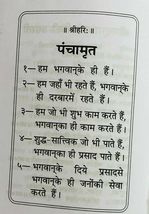 ॥ श्रीहरिः ॥
पंचामृत
१—हम भगवान्‌के ही हैं।
२—हम जहाँ भी रहते हैं, भगवान्‌के
ही दरबारमें रहते हैं।
३—हम जो भी शुभ काम करते हैं,
भगवान्‌का ही काम करते हैं।
४—शुद्ध-सात्त्विक जो भी पाते हैं,
भगवान्‌का ही प्रसाद पाते हैं।
५—भगवान्‌के दिये प्रसादसे
भगवान्‌के ही जनोंकी सेवा
करते हैं।